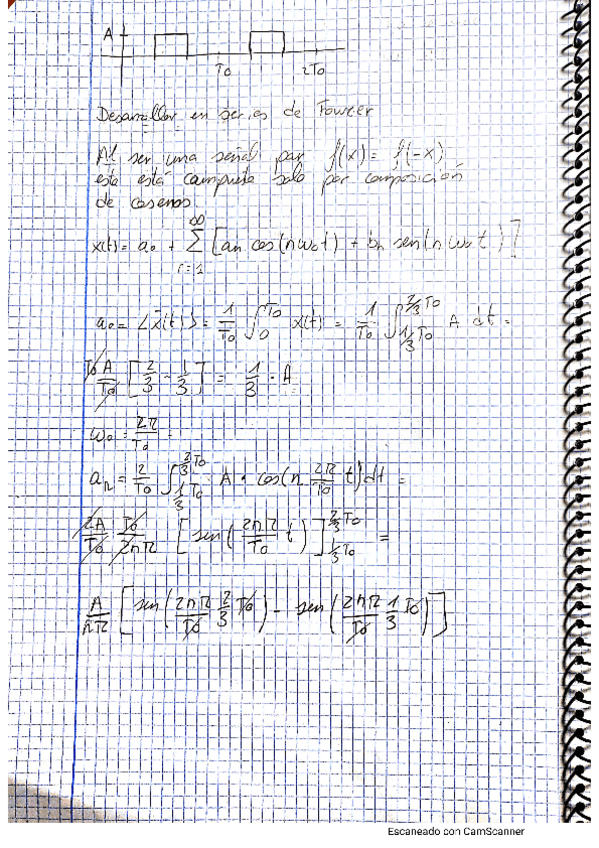 A
T0 2T0
Desarrollar en series de Fourier
Al ser una señal par f(x) = f(-x)
esta está compuesta solo por composición
de cosenos.
x(t) = a0 + ∞ Σ n=1 [an cos(nω0t) + bn sen(nω0t)]
a0 = <x(t)> = 1/T0 ∫ 0 T0 x(t) = 1/T0 ∫ 1/3 T0 2/3 T0 A dt =
T0A/T0 [2/3 - 1/3] = 1/3 · A
ω0 = 2π/T0 =
an = 2/T0 ∫ 1/3 T0 2/3 T0 A · cos(n 2π/T0 t) dt =
2A/T0 T0/2nπ [sen(2nπ/T0 t)] 2/3 T0 1/3 T0 =
A/nπ [sen(2nπ/T0 2/3 T0) - sen(2nπ/T0 1/3 T0)]
Escaneado con CamScanner